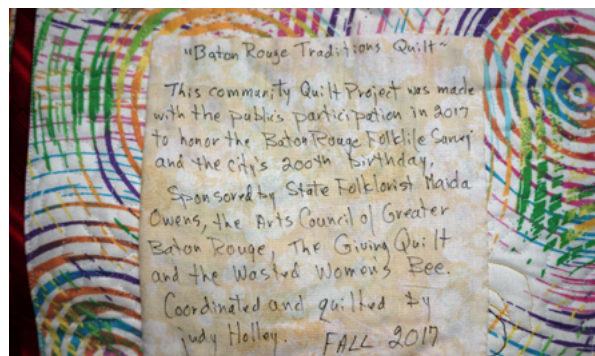 "Baton Rouge Traditions Quilt~
This community Quilt Project was made
with the public's participation in 2017
to honor the Baton Rouge Folklife Survey
and the city's 200th birthday.
Sponsored by State Folklorist Maida
Owens, the Arts Council of Greater
Baton Rouge, The Giving Quilt
and the Wasted Women's Bee.
Coordinated and quilted by
judy Holley. FALL 2017